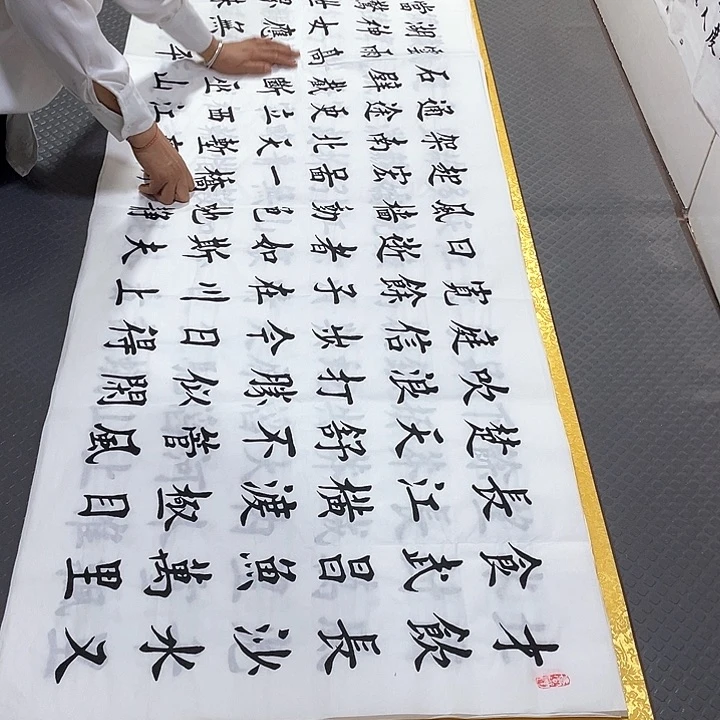 才飲長沙水又
食武昌魚萬里
長江橫渡極目
楚天舒不管風
吹浪打勝似閑
庭信步今日得
寬餘子在川上
曰逝者如斯夫
風墻動龟虵静
起宏圖一橋
架南北天塹
通途更立西江
石壁截斷巫山
雨高平
湖神女應無
當驚